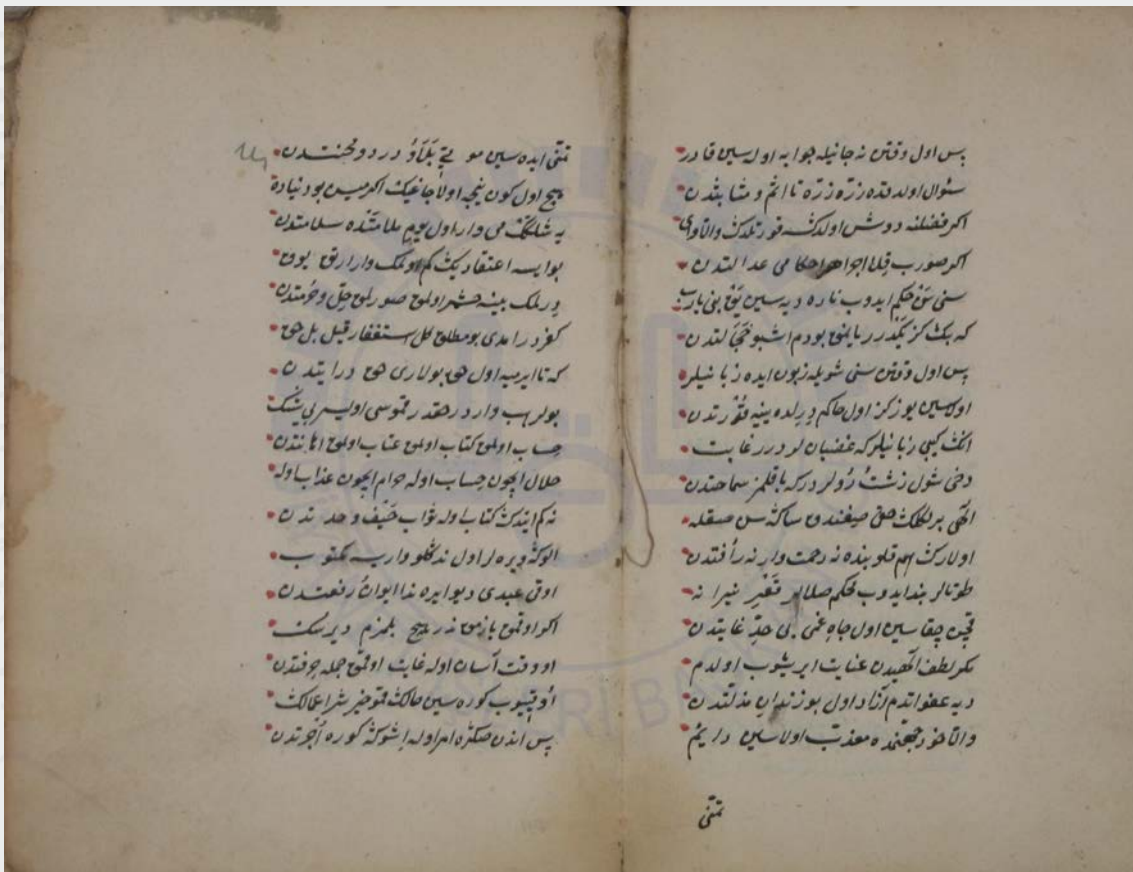 پس اول وقتن نه جانیله جوابه اوله سین قادر
سئوال اولدقده زرّه زرّه تا اثم و مشابتدن
اکر فضلنه دوش اولدکسه قورتلدک والاوای
اکر صورب قلا اجواهر احکامی عدالتدن
سنی سوق حکم ایدوب ناره دیه سین یوق بنی یارب
که بک کز یکدر ریا یانمق بودم اشبو خجالتدن
پس اول وقتن سنی شویله زبون ایده زبانیلر
اوله سین یوز کز اول حاکم دریلده ینه قورتدن
انک کیبی زبانیلر که غضبان لر درر غایت
دخی شول زشت رولر در که باقلمز سماحتدن
الهی برلکک حق صیغندق ساکه سن صقله
اولارک هم قلوبنده نه رحمت وار نه رأفتدن
طوتالر بند ایدوب محکم صلالر قعر نیرانه
قچن چقاسین اول جاه غمی بی حد غایتدن
مکر لطف الهیدن عنایت ایریشوب اولدم
دیه عفو اتدم آزاد اول بو زندان مذلتدن
والا خود جهنمده معذب اولاسین دایم
تمنی
تمنی ایده سین موتی بلا و درد و محنتدن
هیچ اول کون نیجه اولاجاغیک اکرمیسن بو دنیاده
یه شلکک می وار اول یوم ملامتده سلامتدن
بو ایسه اعتقادیک کم اولمک وار ارتق یوق
درلمک ینه حشر اولمق صورلمق حل و حرمتدن
کفردر امدی بو مطلق کل استغفار قیل بل حق
که تا ایرمیه اول حق بولاری حق درایتدن
بولر هب واردر حقدر قموسی اولیسر بی شک
حساب اولمق کتاب اولمق عتاب اولمق اهانتدن
حلال ایچون حساب اوله حرام ایچون عذاب اوله
نه کم ایتدک کتاب اوله ثواب حیف و حدتدن
الوکه ویره لر اول نه کلو وار یسه مکتوب
اوقی عبدی دیو ایره ندا ایوان رفعتدن
اکر اوقمق یازمق ندر هیچ بلمزم دیرسک
او وقت آسان اوله غایت اوقمق جمله حرفتدن
اوقیوب کوره سین حالک قمو خیر شر اعمالک
پس اندن صکره امر اوله اشوکه کوره اجرتدن